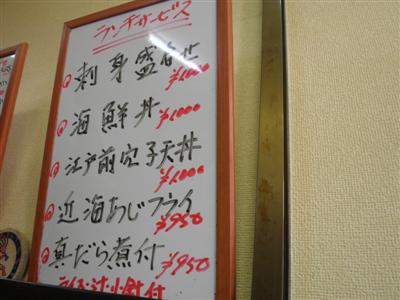 ランチサービス
刺身盛合せ ¥1,000
海鮮丼 ¥1,000
江戸前穴子天丼 ¥1,000
近海あじフライ ¥950
真だら煮付 ¥950
ライス・汁・小鉢付